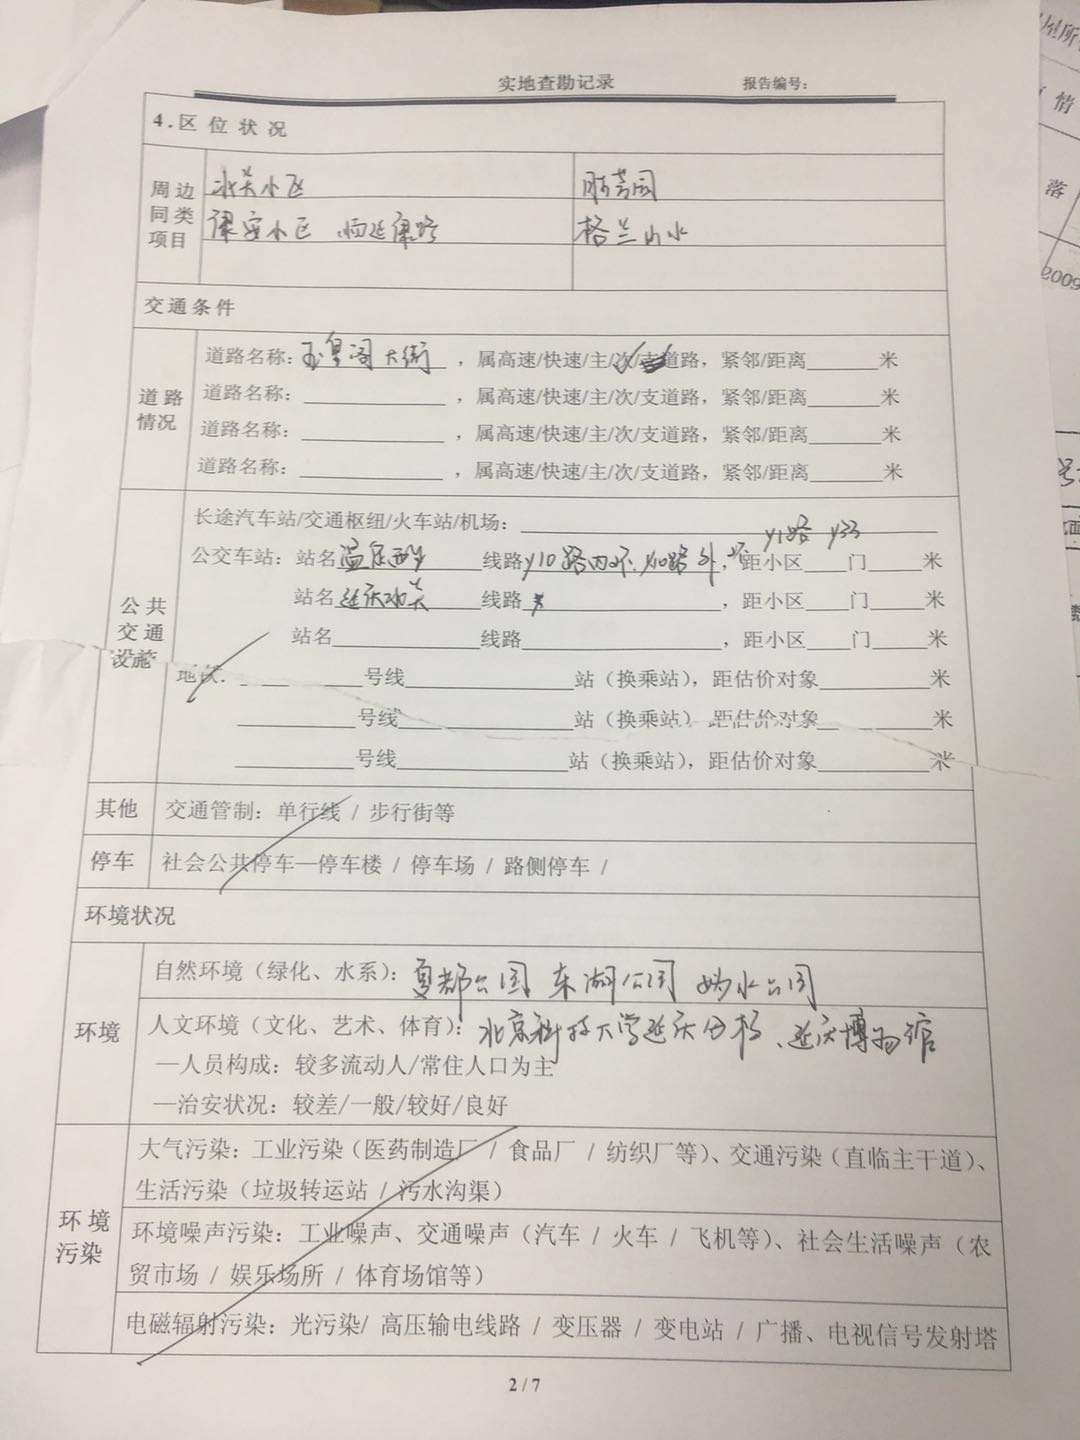 实地查勘记录 报告编号：
4.区位状况
周边同类项目
水关小区
康安小区 临延康路
格兰山水
交通条件
道路情况
道路名称：玉皇阁大街，属高速/快速/主/次/支道路，紧邻/距离______米
道路名称：______，属高速/快速/主/次/支道路，紧邻/距离______米
道路名称：______，属高速/快速/主/次/支道路，紧邻/距离______米
道路名称：______，属高速/快速/主/次/支道路，紧邻/距离______米
公共交通设施
长途汽车站/交通枢纽/火车站/机场：______
y1路 y33
公交车站：站名 线路y10路内环、y10路外环，距小区____门____米
站名延庆水关 线路______，距小区____门____米
站名______线路______，距小区____门____米
地铁：______号线______站（换乘站），距估价对象______米
______号线______站（换乘站），距估价对象______米
______号线______站（换乘站），距估价对象______米
其他 交通管制：单行线 / 步行街等
停车 社会公共停车—停车楼 / 停车场 / 路侧停车 /
环境状况
环境
自然环境（绿化、水系）：夏都公园 东湖公园 妫水公园
人文环境（文化、艺术、体育）：北京科技大学延庆分校、延庆博物馆
—人员构成：较多流动人/常住人口为主
—治安状况：较差/一般/较好/良好
环境污染
大气污染：工业污染（医药制造厂 / 食品厂 / 纺织厂等）、交通污染（直临主干道）、
生活污染（垃圾转运站 / 污水沟渠）
环境噪声污染：工业噪声、交通噪声（汽车 / 火车 / 飞机等）、社会生活噪声（农
贸市场 / 娱乐场所 / 体育场馆等）
电磁辐射污染：光污染/ 高压输电线路 / 变压器 / 变电站 / 广播、电视信号发射塔
2 / 7
情
落
2009